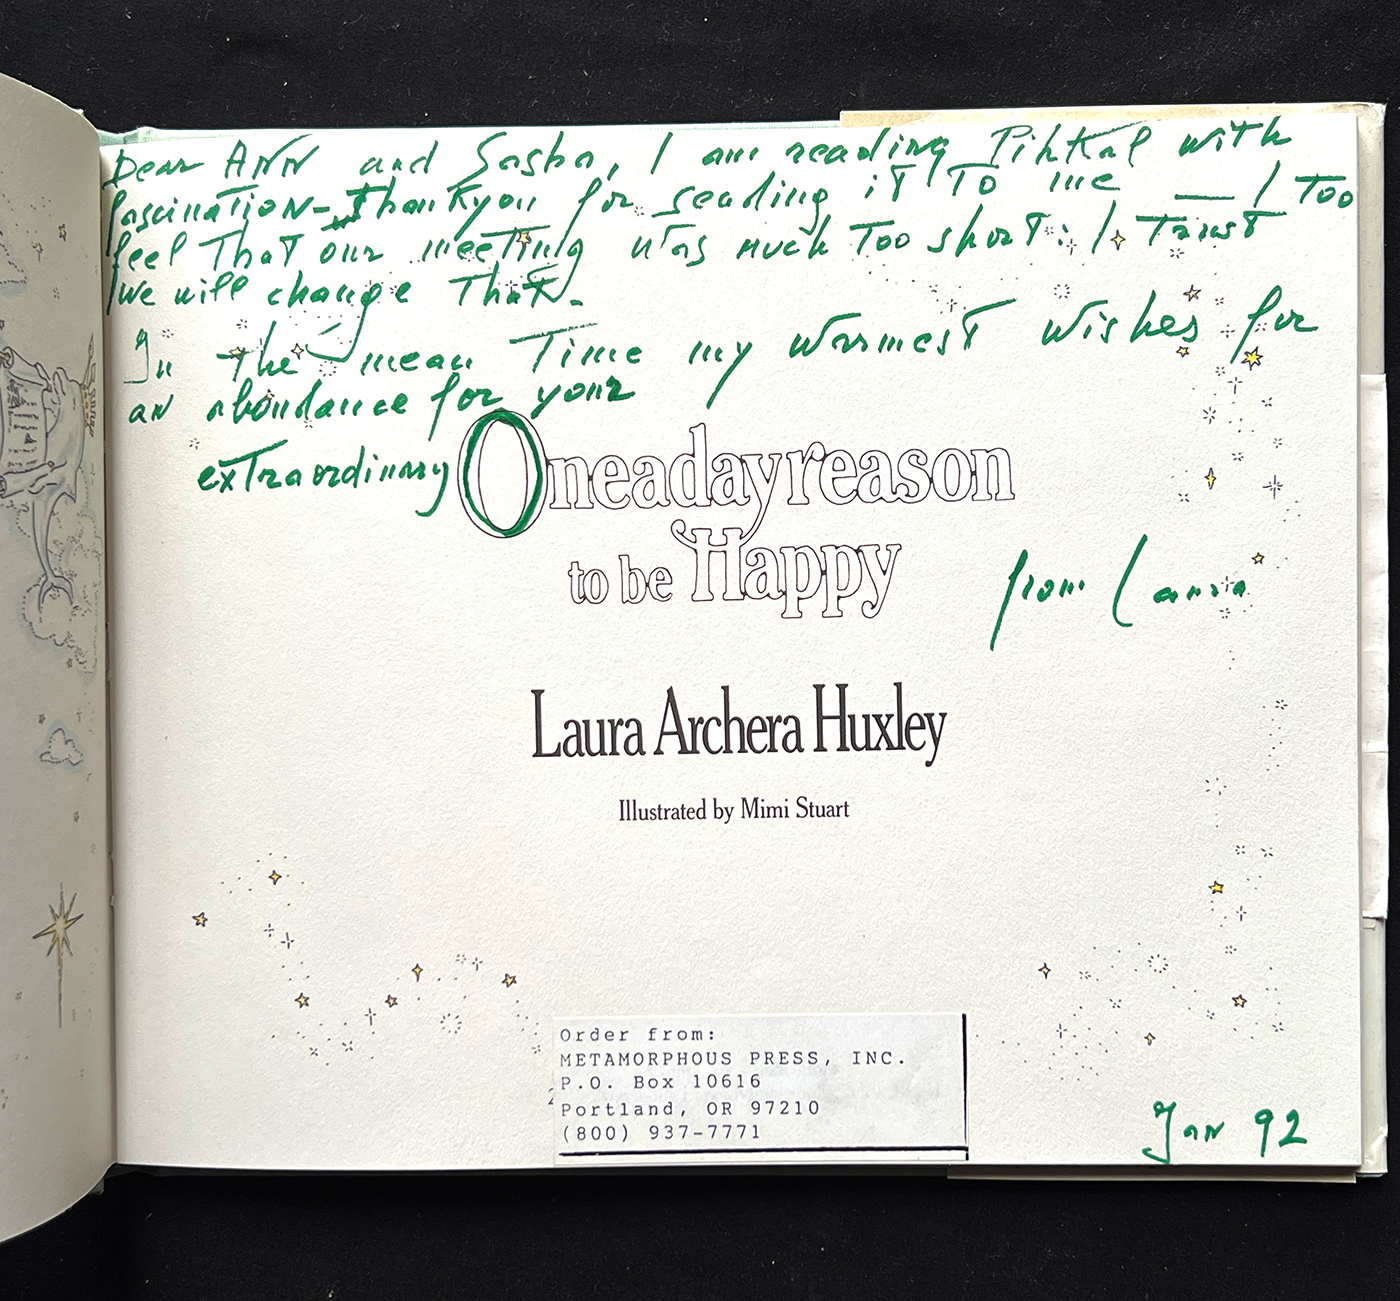 Dear ANN and Sasha, I am reading Pihkal with
fascination - Thankyou for sending it To me — I Too
feel That our meeting was much Too short: I Trust
we will change That.
In the mean Time my warmest wishes for
an abondance for your
extraordinary
Oneadayreason
to be Happy
from Laura
Laura Archera Huxley
Illustrated by Mimi Stuart
Order from:
METAMORPHOUS PRESS, INC.
P.O. Box 10616
Portland, OR 97210
(800) 937-7771
Jan 92